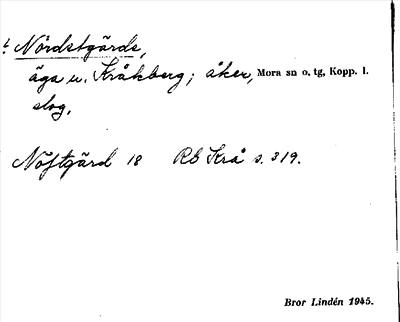 t Nördstgärde,
äga u. Kråkberg; åker, Mora sn o. tg, Kopp. l.
slog.
Nöftgärd 18 Rb Krå s. 319.
Bror Lindén 1945.